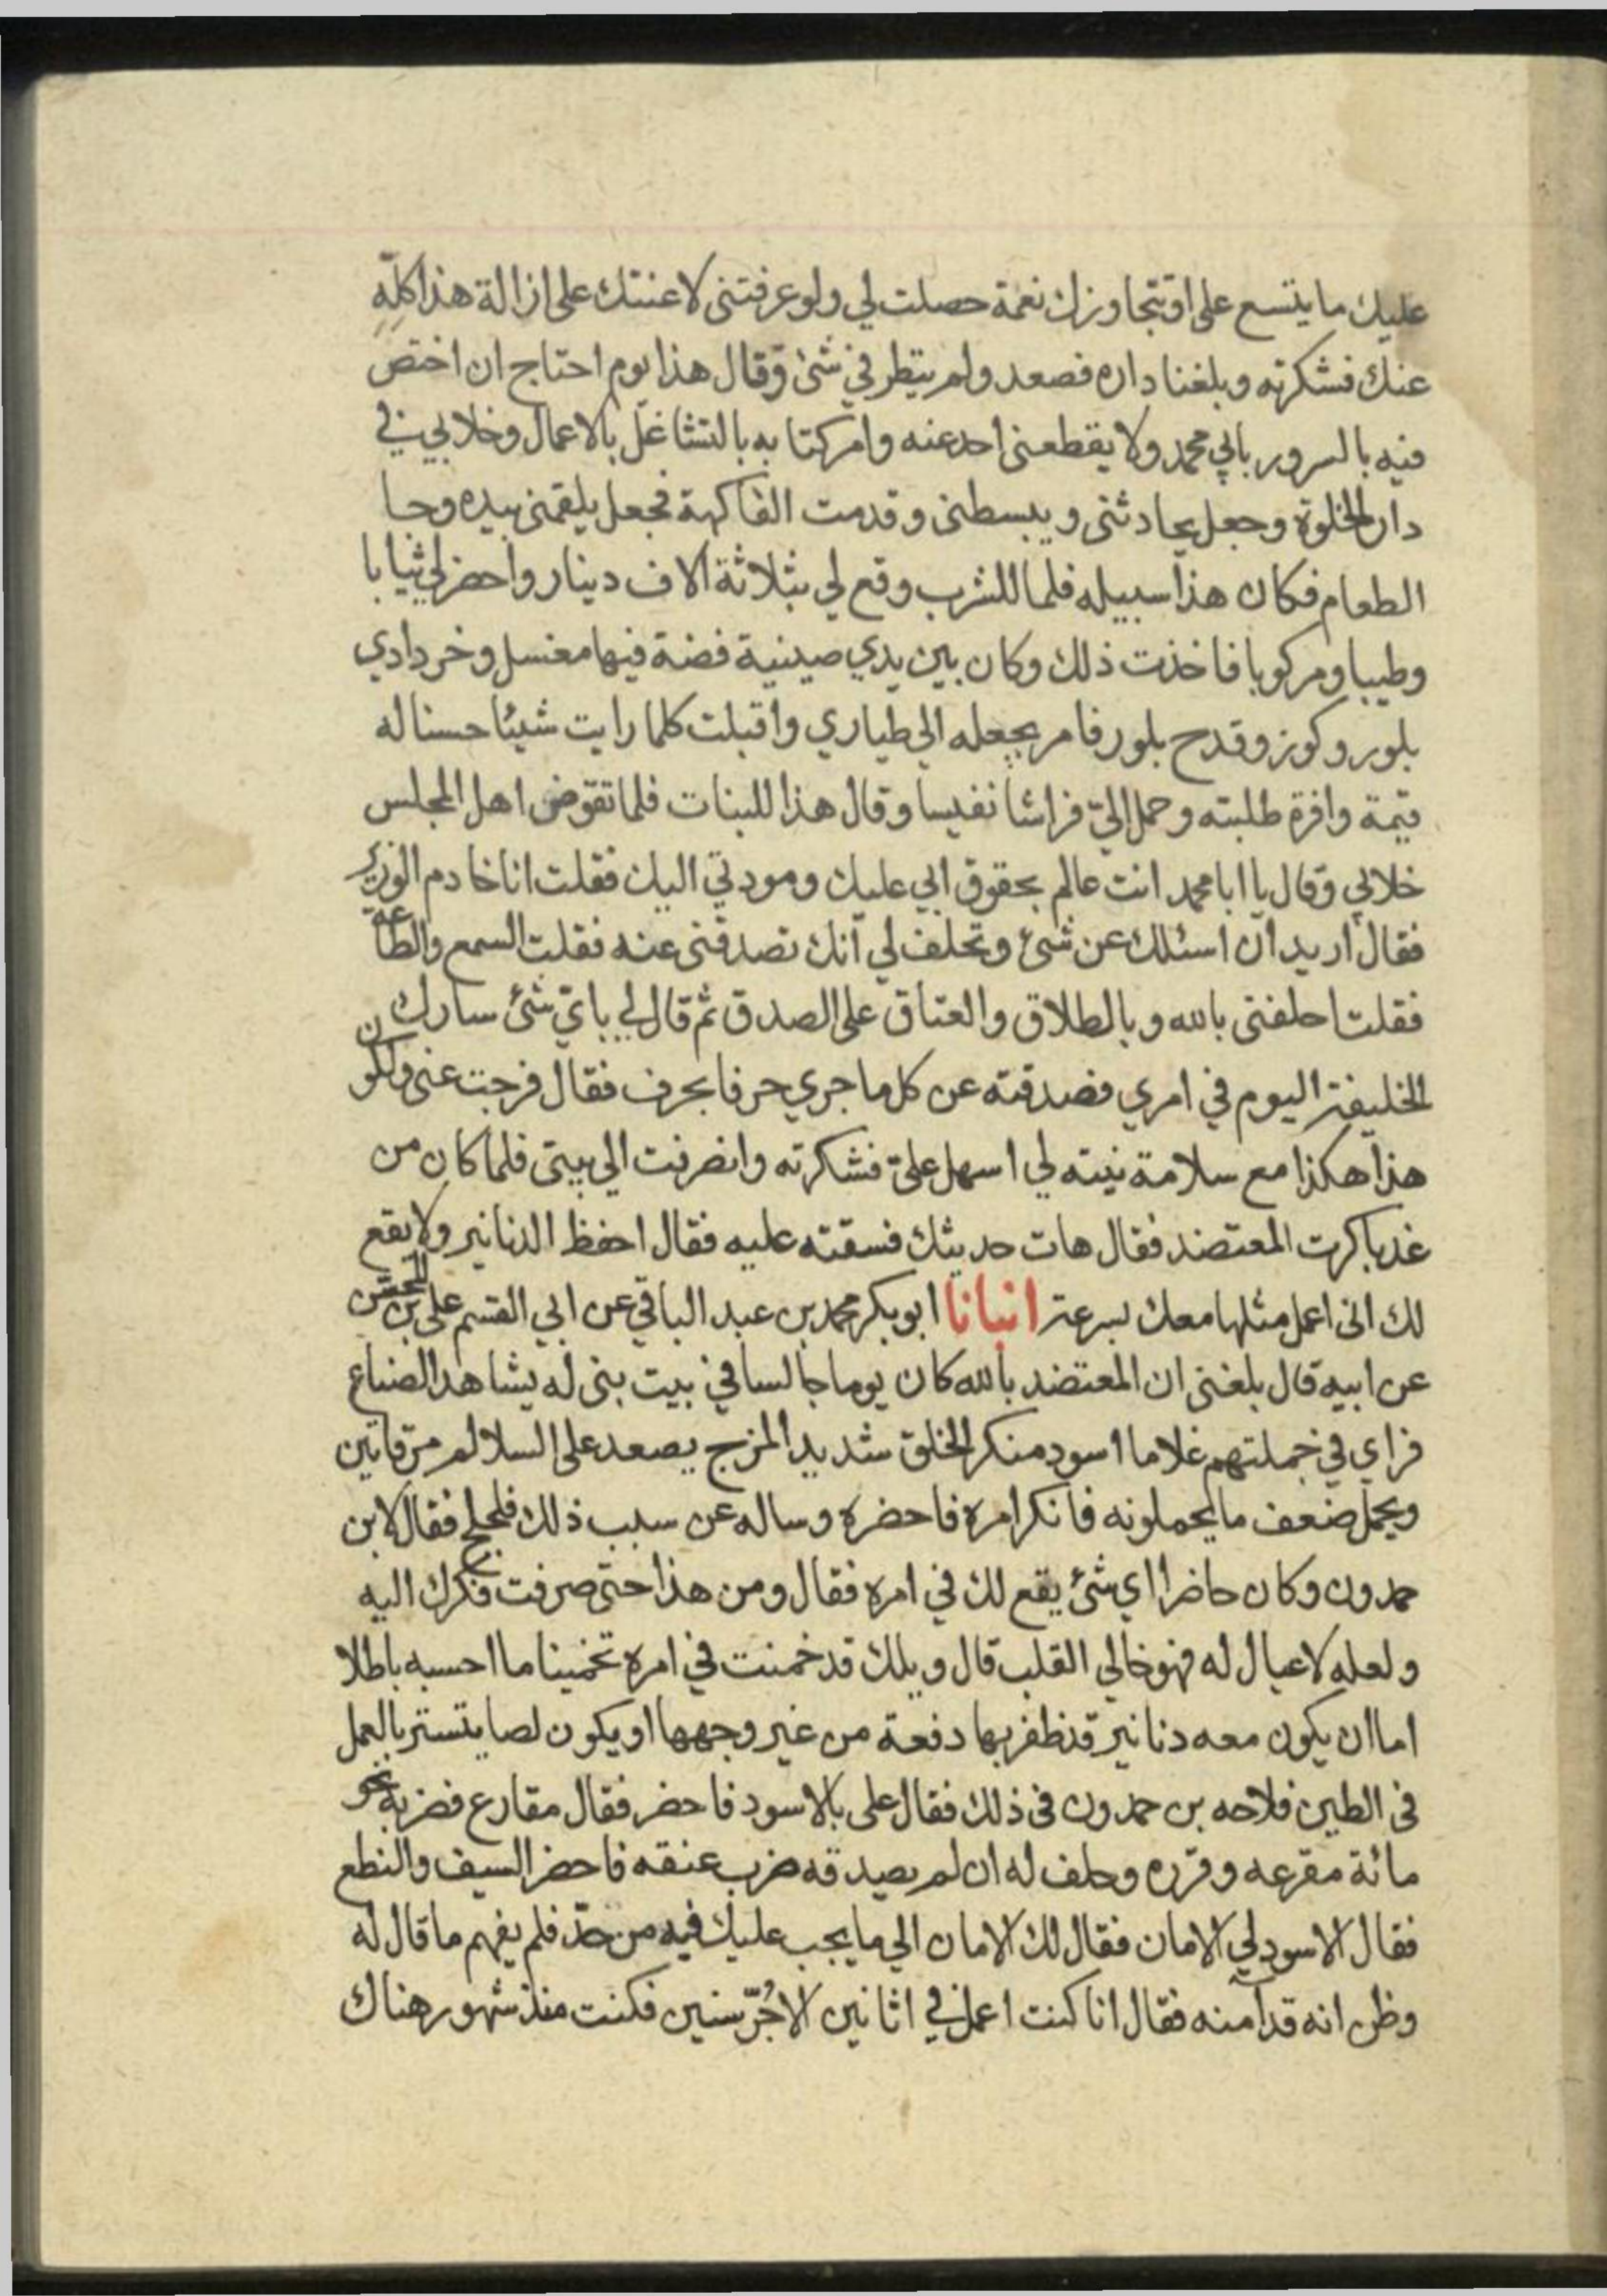 عليك ما يتسع على او تتجاوزك نعمة حصلت لي ولو عرفتني لاعنتك على ازالة هذا كلّه
عنك فشكرته وبلغنا داره فصعد ولم ينظر في شئ وقال هذا يوم احتاج ان اختص
فيه بالسرور بابي محمد ولا يقطعني احد عنه وامر كتابه بالتشاغل بالاعمال وخلا بي في
دار الخلوة وجعل يحادثني ويبسطني وقدمت الفاكهة فجعل يلقمني بيده وجا
الطعام فكان هذا سبيله فلما للشرب وقع لي بثلاثة الاف دينار واحضر لي ثيابا
وطيبا ومركوبا فاخذت ذلك وكان بين يدي صينية فضة فيها مغسل وخردادي
بلور وكوز وقدح بلور فامر بجعله الي طياري واقبلت كلما رايت شيئا حسنا له
قيمة وافرة طلبته وحمل اليّ فراشا نفيسا وقال هذا للبنات فلما تقوض اهل المجلس
خلا بي وقال يا ابا محمد انت عالم بحقوق ابي عليك ومودتي اليك فقلت انا خادم الوزير
فقال اريد ان اسئلك عن شئ وتحلف لي انك تصدقني عنه فقلت السمع والطاعة
فقلت احلفني بالله وبالطلاق والعتاق على الصدق ثم قال لي باي شئ سارك
الخليفة اليوم في امري فصدقته عن كل ما جري حرفا بحرف فقال فرجت عني ولكون
هذا هكذا مع سلامة نيته لي اسهل عليّ فشكرته وانصرفت الي بيتى فلما كان من
غد باكرت المعتضد فقال هات حديثك فسقته عليه فقال احفظ الدنانير ولا يقع
لك اني اعمل مثلها معك بسرعة انبانا ابو بكر محمد بن عبد الباقي عن ابي القسم على بن المحسّن
عن ابيه قال بلغني ان المعتضد بالله كان يوما جالسا في بيت بنى له يشاهد الصناع
فراي في جملتهم غلاما اسود منكر الخلق شديد المزج يصعد على السلالم مرقاتين
ويحمل ضعف ما يحملونه فانكر امره فاحضره وساله عن سبب ذلك فلجلج فقال لابن
حمدون وكان حاضرا اي شئ يقع لك في امره فقال ومن هذا حتى صرفت فكرك اليه
ولعله لا عيال له فهو خالي القلب قال ويلك قد خمنت في امره تخمينا ما احسبه باطلا
اما ان يكون معه دنانير قد ظفر بها دفعة من غير وجهها او يكون لصا يتستر بالعمل
في الطين فلاحه بن حمدون في ذلك فقال على بالاسود فاحضر فقال مقارع فضربه نحو
مائة مقرعه وقرره وحلف له ان لم يصدقه ضرب عنقه فاحضر السيف والنطع
فقال الاسود لي الامان فقال لك الامان الي ما يجب عليك فيه من حدّ فلم يفهم ما قال له
وظن انه قد آمنه فقال انا كنت اعمل في اتانين الاجُرّ سنين فكنت منذ شهور هناك